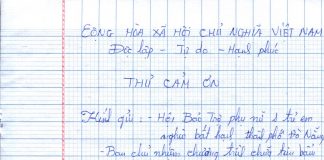 CỘNG HÒA XÃ HỘI CHỦ NGHĨA VIỆT NAM
Độc lập - Tự do - Hạnh phúc
THƯ CẢM ƠN
Kính gửi: - Hội Bảo Trợ phụ nữ & trẻ em
nghèo bất hạnh thành phố Đà Nẵng
- Ban chủ nhiệm chương trình